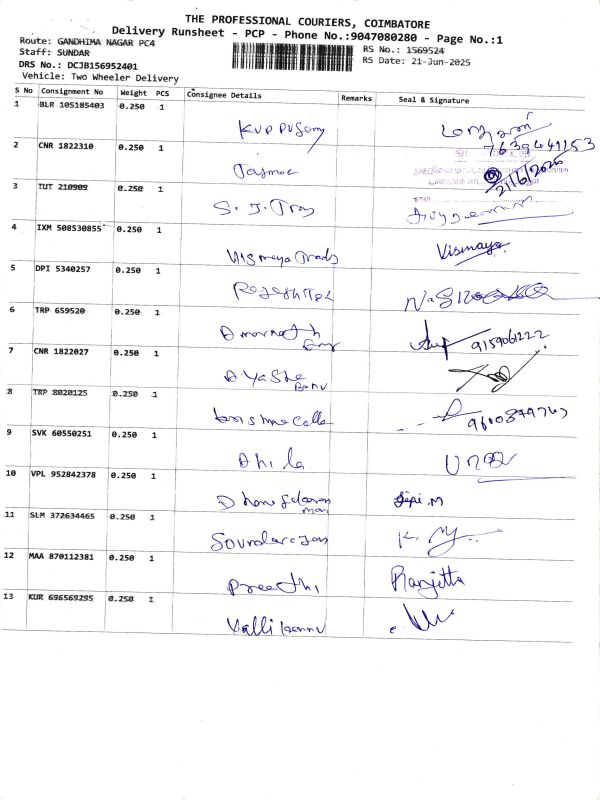 THE PROFESSIONAL COURIERS, COIMBATORE
Delivery Runsheet - PCP - Phone No.:9047080280 - Page No.:1
Route: GANDHIMA NAGAR PC4
RS No.: 1569524
Staff: SUNDAR
RS Date: 21-Jun-2025
DRS No.: DCJB156952401
Vehicle: Two Wheeler Delivery
S No Consignment No Weight PCS Consignee Details Remarks Seal & Signature
1 BLR 105185403 0.250 1
Kuppusamy
7639441153
2 CNR 1822310 0.250 1
Tasmac
21/6/2025
3 TUT 210909 0.250 1
S. J. Tray
4 IXM 508530855 0.250 1
Vismaya Trads Vismaya
5 DPI 5340257 0.250 1
Rajesh Tex
6 TRP 659520 0.250 1
Amarnath
9159061222
7 CNR 1822027 0.250 1
8 TRP 8020125 0.250 1
9600879747
9 SVK 60550251 0.250 1
Ahila
10 VPL 952842378 0.250 1
11 SLM 372634465 0.250 1
Soundararajan
12 MAA 870112381 0.250 1
Preethi Ranjitta
13 KUR 696569295 0.250 1
Vallikannu